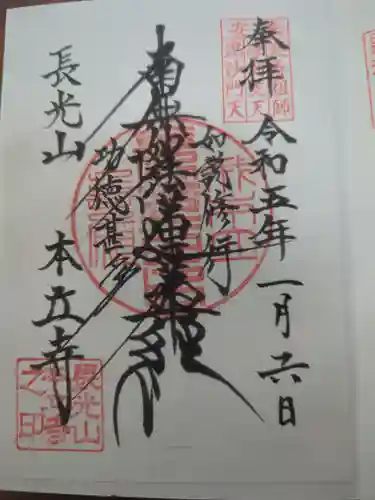 奉拝
令和五年一月六日
如説修行
南無妙法蓮華経
功徳甚多
長光山
本立寺
長光山